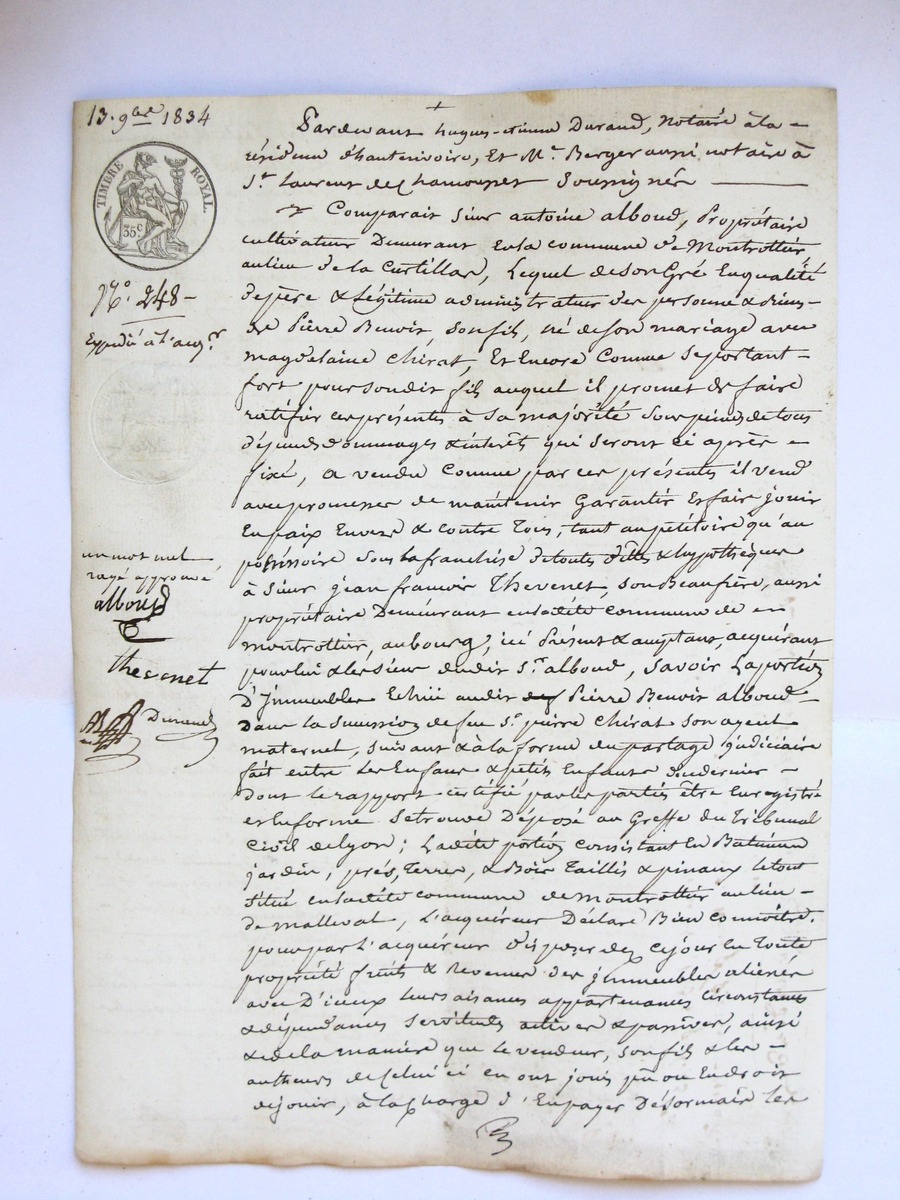 13. 9bre 1834
TIMBRE ROYAL.
35c
No. 248 -
Expédié à l'acqr
un mot nul
rayé approuvé
alboud
thevenet
Durand
Pardevant hugues-etienne Durand, Notaire à la -
résidence d'hauterivoire, Et Me. Berger aussi notaire à
St. Laurent de Chamousset Soussignés
Comparait Sieur antoine alboud, Propriétaire
cultivateur Demeurant En la commune de Montrottier
au lieu de la Curtillat, Lequel de son Gré En qualité
de père & Légitime administrateur des personne & Biens -
de Pierre Benoit son fils, né de son mariage avec
magdelaine Chirat, Et Encore Comme se portant -
fort pour son dit fils auquel il promet de faire
ratifier ces présentes à sa majorité sous peine de tous
dépends dommages & interêts qui seront ci après -
fixé, a vendu Comme par ces présentes il vend
avec promesse de maintenir Garantir Et faire jouir
En paix Envers & contre Tous, tant au pétitoire qu'au
possessoire sous la franchise de toutes dettes & hypothèques
à Sieur jean francois Thevenet, son Beaufrère, aussi
propriétaire Demeurant en la dite commune de -
montrottier, au bourg, ici Présent & acceptant, acquérant
pour lui & les siens dudit Sr. alboud, Savoir La portion
D'Immeubles Echue audit Pierre Benoit alboud -
Dans la succession de feu Sr. pierre Chirat son ayeul
maternel, suivant & à la forme du partage judiciaire
fait entre les Enfans & petits Enfants de ce dernier -
dont le rapport certifié par les parties être Enregistré
et en forme se trouve Déposé au Greffe du Tribunal
Civil de Lyon; La dite portion Consistant En Batimens
jardin, prés, Terres, & Bois Taillis & pinaux le tout
situé en la dite commune de Montrottier au lieu -
de malleval, L'acquéreur Déclare Bien connoitre.
pour par L'acquéreur disposer dez ce jour En Toute
propriété fruits & Revenus des jmmeubles aliénés
avec D'iceux leurs aisances appartenances circonstances
& dépendances servitudes actives & passives, ainsi
& de la manière que le vendeur, son fils & les -
autheurs de Celui ci en ont joui pu ou En droit
de jouir, à la charge d'En payer Désormais les